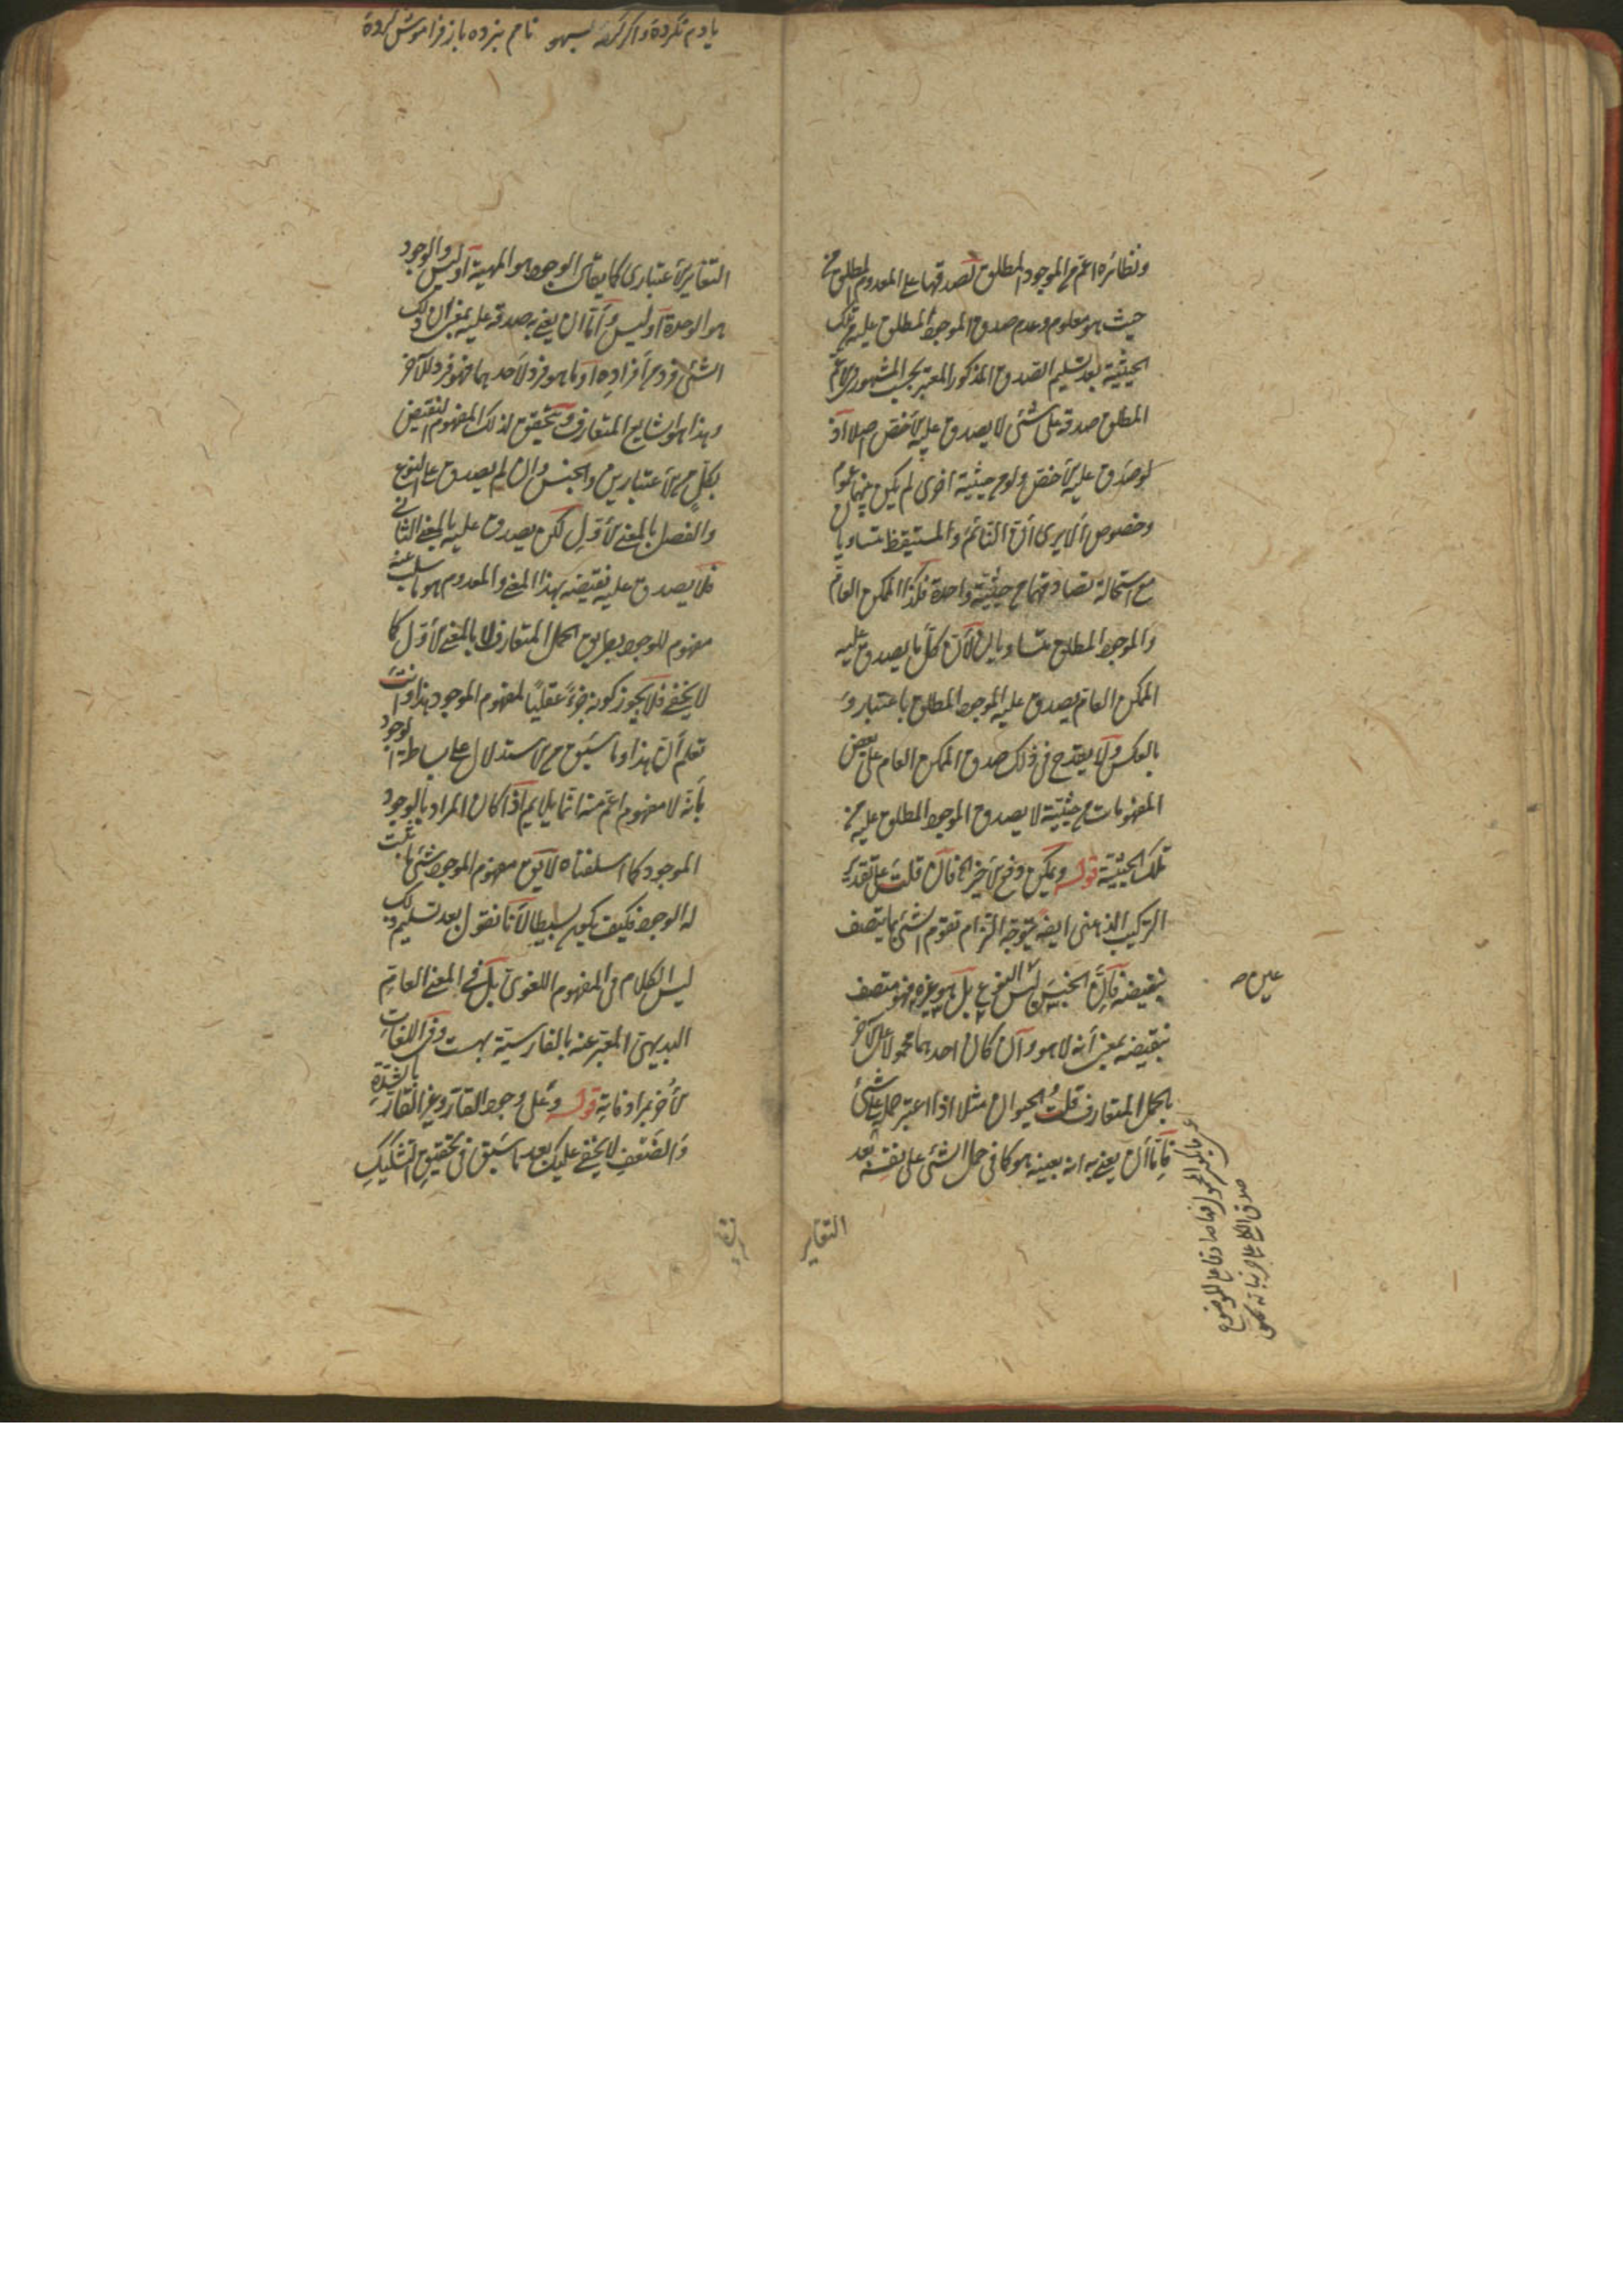 ونظائره اعم من الموجود المطلق لصدقها على المعدوم المطلق من
حيث هو معلوم وعدم صدق الموجود المطلق عليه من تلك
الحيثية بعد تسليم الصدق المذكور المعتبر بحسب المشهور في الاعم
المطلق صدقه على شئ لا يصدق عليه الاخص اصلا اذ
لو صدق عليه الاخص ولو من حيثية اخرى لم يكن بينهما عموم
وخصوص ألا يرى أن النائم والمستيقظ متساويان
مع استحالة تصادقهما من حيثية واحدة فكذا الممكن العام
والموجود المطلق متساويان لأن كل ما يصدق عليه
الممكن العام يصدق عليه الموجود المطلق باعتبار و
بالعكس ولا يقدح في ذلك صدق الممكن العام على بعض
المفهومات من حيثية لا يصدق الموجود المطلق عليه من
تلك الحيثية قوله ويمكن دفع الاخير الخ فان قلت على تقدير
التركيب الذهني ايضا يتوجه التزام تقوم الشئ بما يتصف
بنقيضه فإن الجنس ليس النوع بل هو غيره فهو متصف
بنقيضه بمعنى أنه لا هو وان كان احدهما محمولا على الآخر
بالحمل المتعارف قلت الحيوان مثلا اذا اعتبر حمله على شئ
فإما أن يعنى به انه بعينه هو كما في حمل الشئ على نفسه بعد
عين صه
التغاير
يادم نكرده واكر كه بسهو نامم نبرده باز فراموش كرده
التغاير الاعتباري كما يقال الوجود هو المهية أو ليس والوجود
هو الوحدة أو ليس وإما ان يعنى به صدقه عليه بمعنى ان ذلك
الشئ فرد من أفراده او ما هو فرد لأحدهما فهو فرد للآخر
وهذا هو الشايع المتعارف ويتحقق لذلك المفهوم النقيض
بكل من الاعتبارين والجنس وان لم يصدق على النوع
والفصل بالمعنى الأول لكن يصدق عليه بالمعنى الثاني
فلا يصدق عليه نقيضه بهذا المعنى والمعدوم هو ما سلب عنه
مفهوم الموجود بطريق الحمل المتعارف لا بالمعنى الأول كما
لا يخفى فلا يجوز كونه جزءً عقليًا لمفهوم الموجود هذا وانت
تعلم أن هذا وما سبق من الاستدلال على بساطة الوجود
بأنه لا مفهوم اعم منه انما يلايم اذا كان المراد بالوجود
الموجود كما اسلفناه لا يق مفهوم الموجود شئ ثبت
له الوجود فكيف يكون بسيطا لأنا نقول بعد تسليم ذلك
ليس الكلام في المفهوم اللغوي بل في المعنى العام
البديهي المعتبر عنه بالفارسية بهست وفي اللغات
الأخر بمرادفاته قوله وعلى وجود القار وغير القار بالشدة
والضعف لا يخفى عليك بعد ما سبق في تحقيق التشكيك